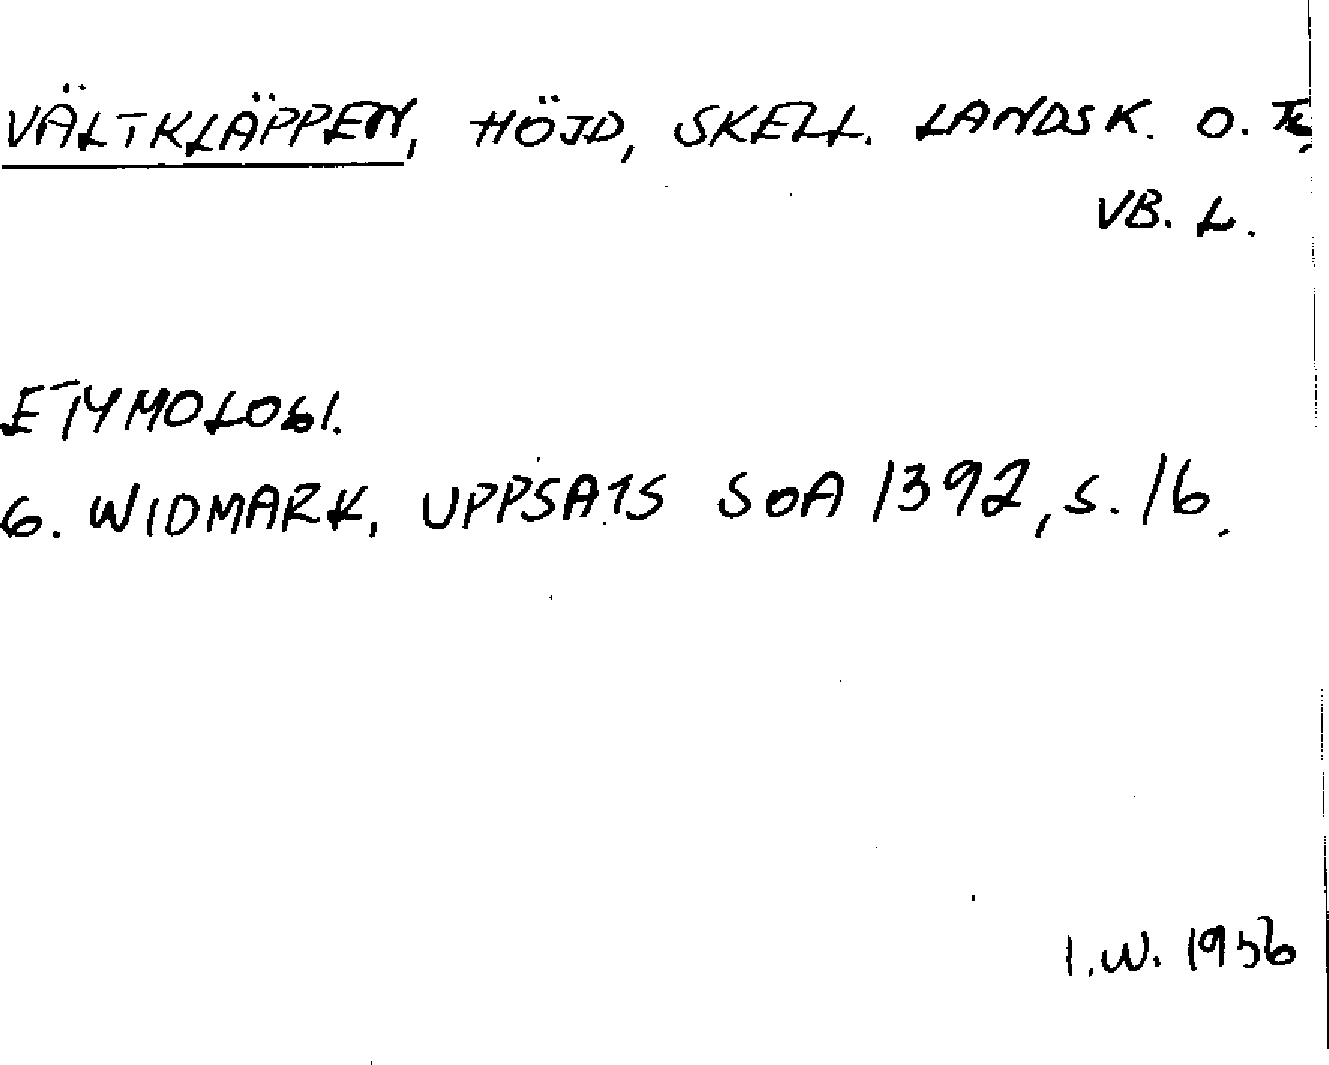 VÄLTKLÄPPEN, HÖJD, SKELL. LANDSK. O.
VB. L.
ETYMOLOGI.
G. WIDMARK, UPPSATS SOA 1392, S. 16.
I.W. 1956